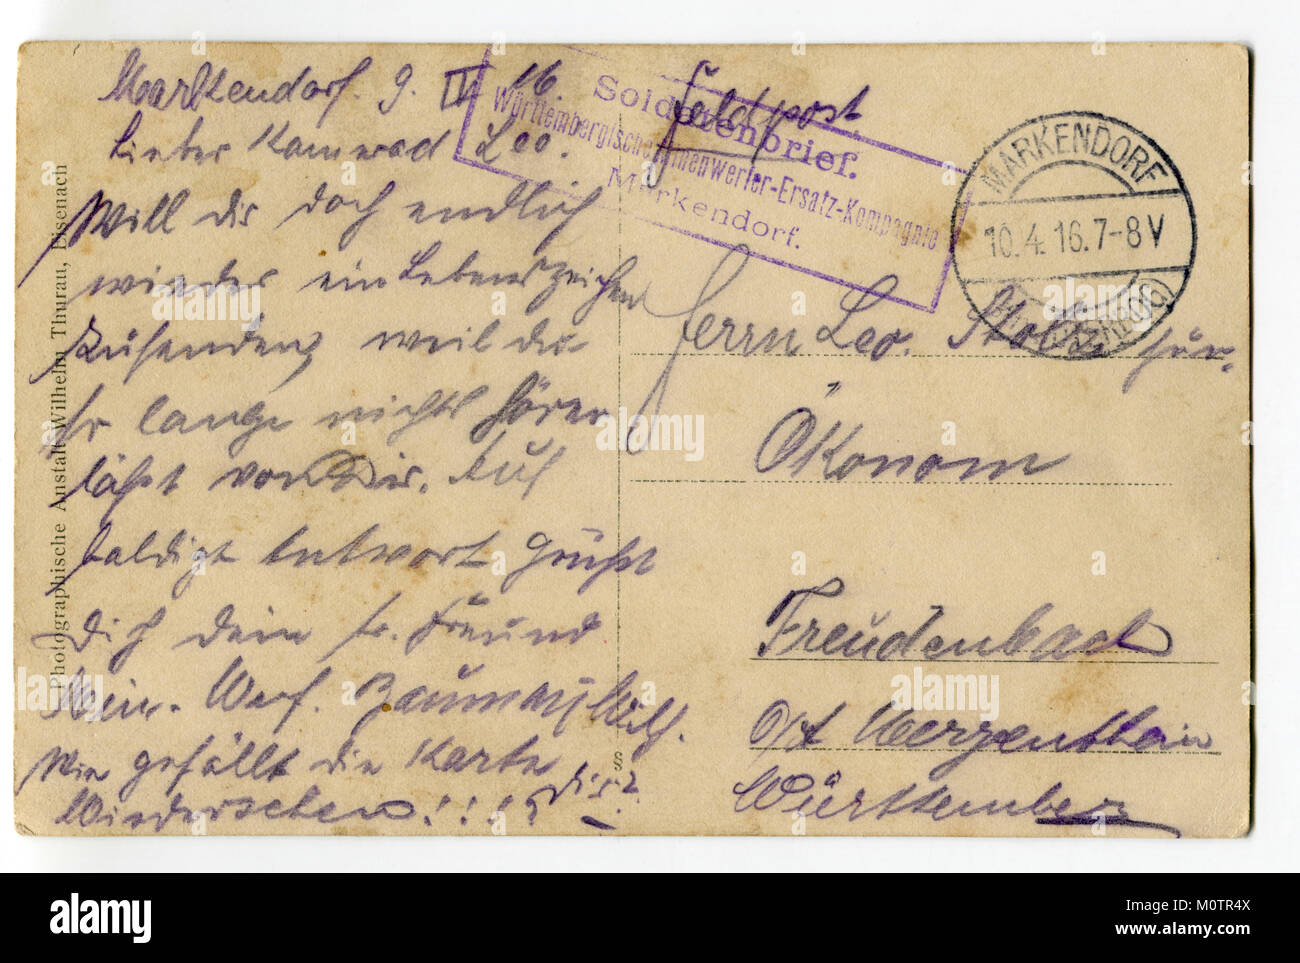 Markendorf. 9. IV 16.
Lieber Kamerad Leo.
Will dir doch endlich
wieder ein Lebenszeichen
zusenden, weil du
so lange nichts hören
läßt von Dir. Auf
baldige Antwort grüßt
Dich dein tr. Freund
Min. Werf. Baumann Wilh.
Wie gefällt die Karte dir?
Wiedersehen!!!!
Feldpost.
Soldatenbrief.
Württembergische Minenwerfer-Ersatz-Kompagnie
Markendorf.
MARKENDORF
10.4.16.7-8V
Herrn Leo. jun.
Ökonom
Freudenbach
O/A Mergentheim
Württemberg
Photographische Anstalt Wilhelm Thurau, Eisenach
§
alamy
Image ID: M0TR4X
www.alamy.com